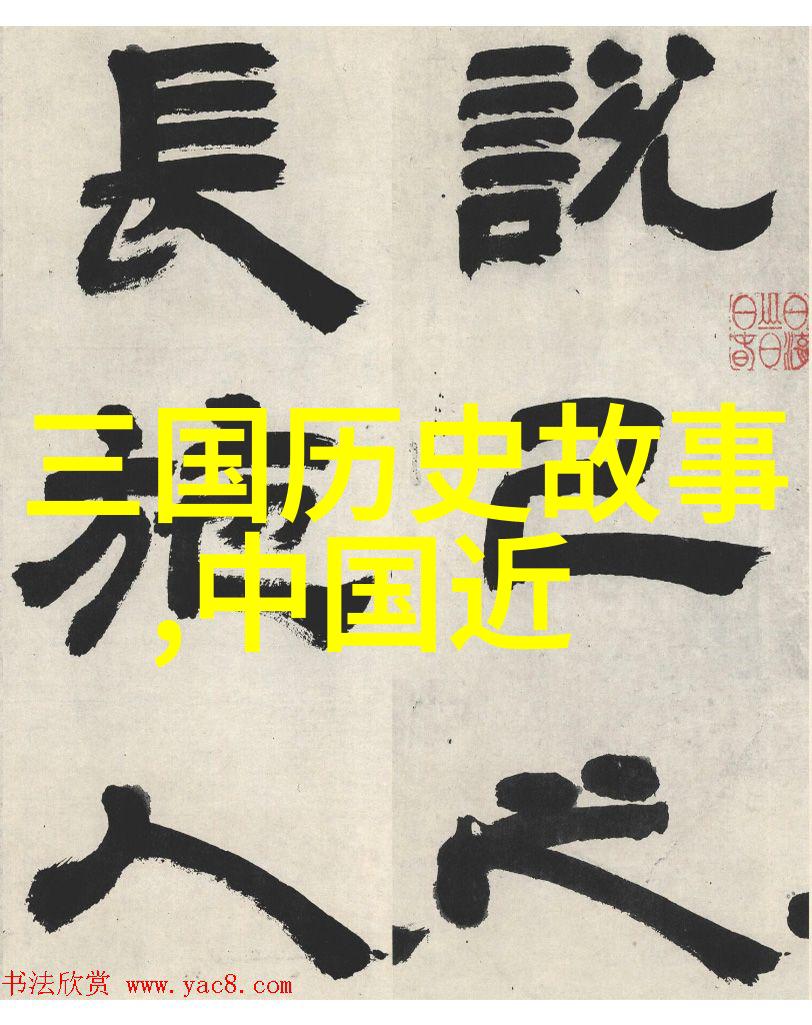 説己之
長施人
三国历史故事
,中国近
书法欣赏 www.yac8.com